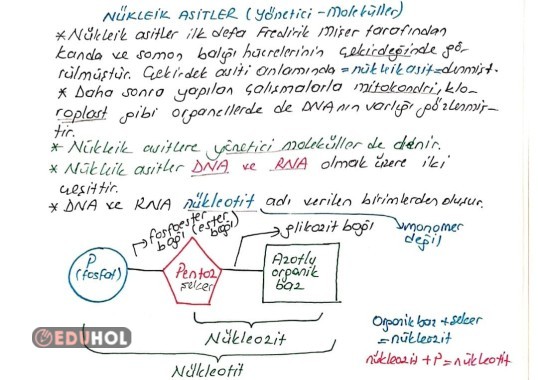 NÜKLEİK ASİTLER (Yönetici-Moleküller)
* Nükleik asitler ilk defa Fredirik Mişer tarafından
kanda ve somon balığı hücrelerinin çekirdeğinde gör
rülmüştür. Çekirdek asiti anlamında =nükleik asit= denmişt.
* Daha sonra yapılan çalışmalarla mitokondri, klo-
roplast gibi organellerde de DNA nın varlığı gözlenmiş-
tir.
* Nükleik asitlere yönetici moleküller de denir.
* Nükleik asitler DNA ve RNA olmak üzere iki
çeşittir.
* DNA ve RNA nükleotit adı verilen birimlerden oluşur.
monomer
değil
fosfoester
bağı (ester
bağı)
glikozit bağı
P
(fosfat)
Pentoz
şeker
Azotlu
organik
baz
Nükleozit
Nükleotit
Organik baz + şeker
= nükleozit
nükleozit + P = nükleotit
EDUHOL